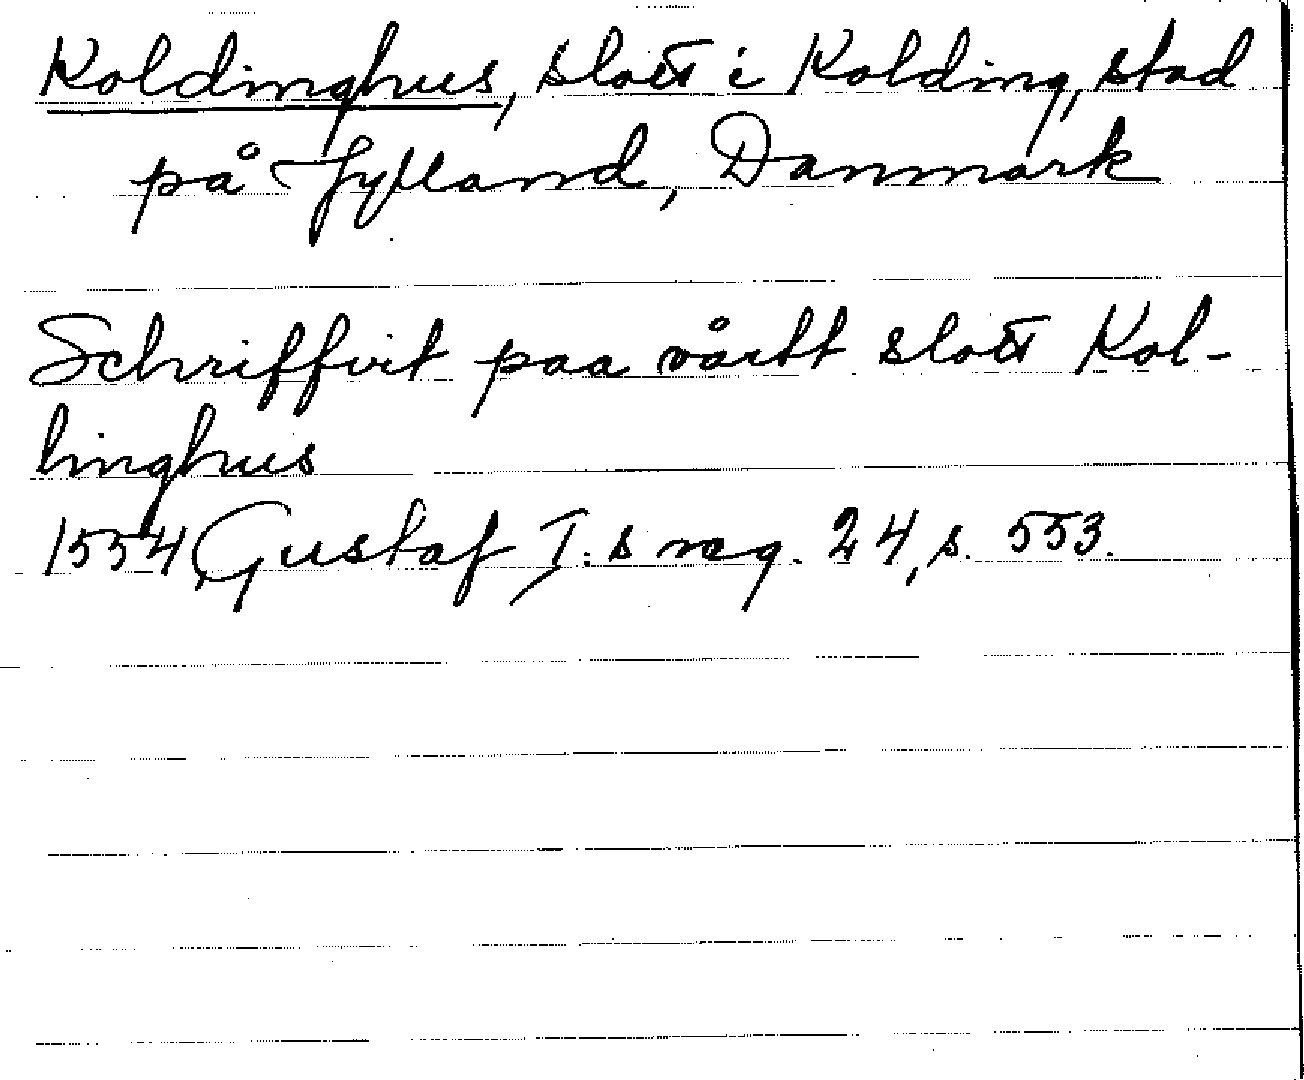 Koldinghus, slott i Kolding, stad
på Jylland, Danmark
Schriffvit paa vårtt slott Kol-
linghus
1554, Gustaf I:s reg. 24, s. 553.